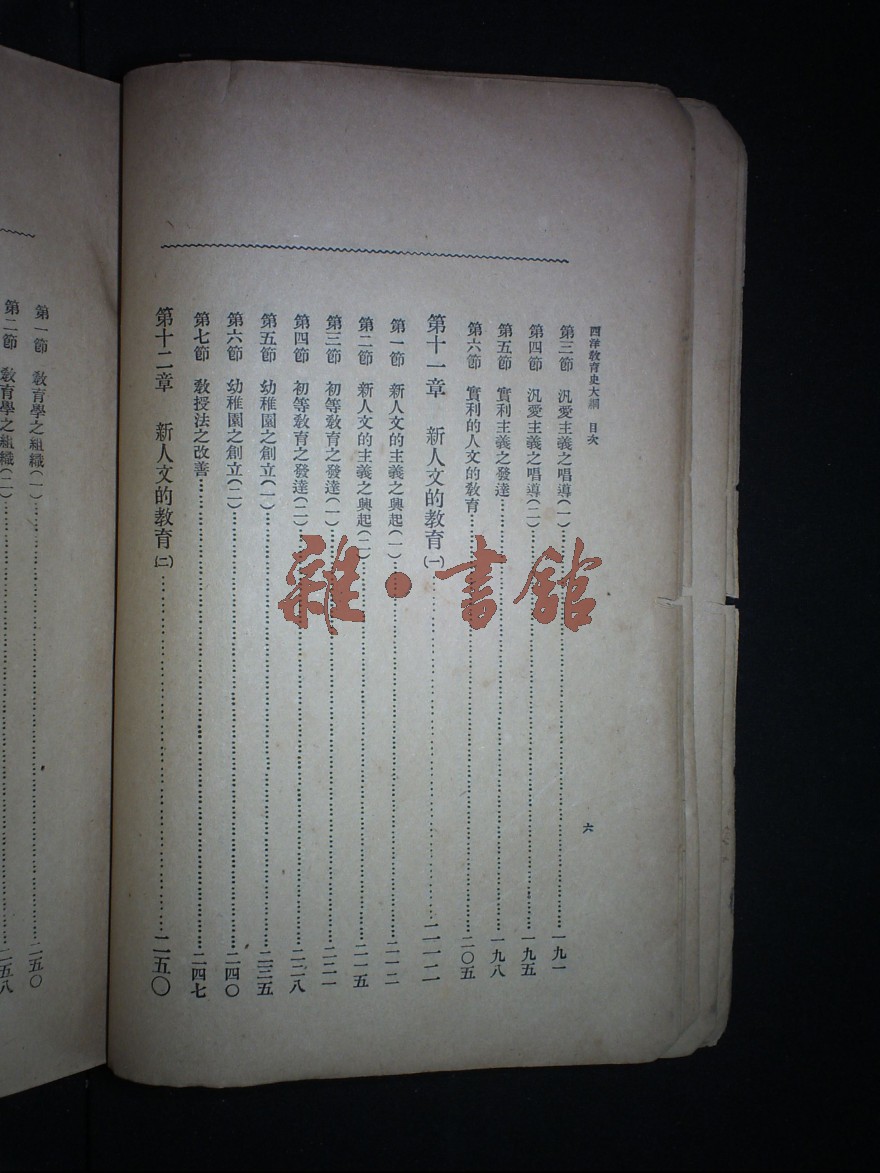 西洋教育史大綱 目次
六
第三節 汎愛主義之唱導(一)……一九一
第四節 汎愛主義之唱導(二)……一九五
第五節 實利主義之發達……一九八
第六節 實利的人文的教育……二〇五
第十一章 新人文的教育(一)……二一二
第一節 新人文的主義之興起(一)……二一二
第二節 新人文的主義之興起(二)……二一五
第三節 初等教育之發達(一)……二二一
第四節 初等教育之發達(二)……二二八
第五節 幼稚園之創立(一)……二三五
第六節 幼稚園之創立(二)……二四〇
第七節 教授法之改善……二四七
第十二章 新人文的教育(二)……二五〇
第一節 教育學之組織(一)……二五〇
第二節 教育學之組織(二)……二五八
雜·書館